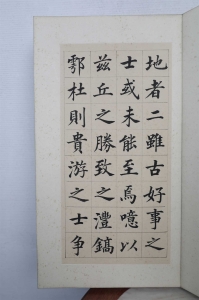 地者二雖古好事之
士或未能至焉噫以
茲丘之勝致之灃鎬
鄠杜則貴游之士爭